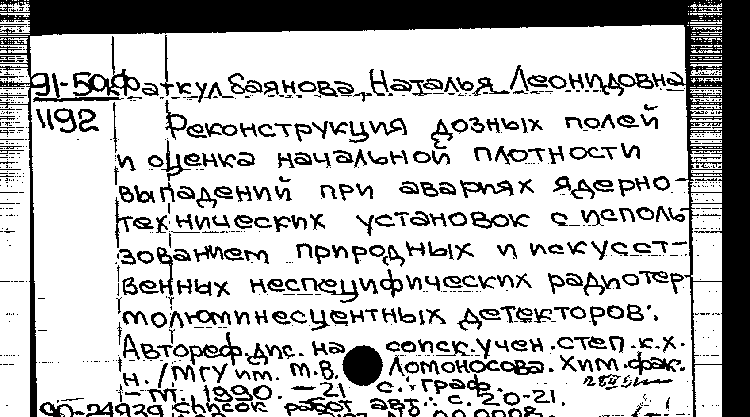 91-50к Фаткулбаянова, Наталья Леонидовна
1192
Реконструкция дозных полей
и оценка начальной плотности
выпадений при авариях ядерно-
технических установок с исполь-
зованием природных и искусст-
венных неспецифических радиотер-
молюминесцентных детекторов:
Автореф. дис. на соиск. учен. степ. к.х.
н. / МГУ им. М.В. Ломоносова. Хим. фак.
– М. 1990. – 21 с.: граф.
90-24939 Список работ авт.: с. 20-21.